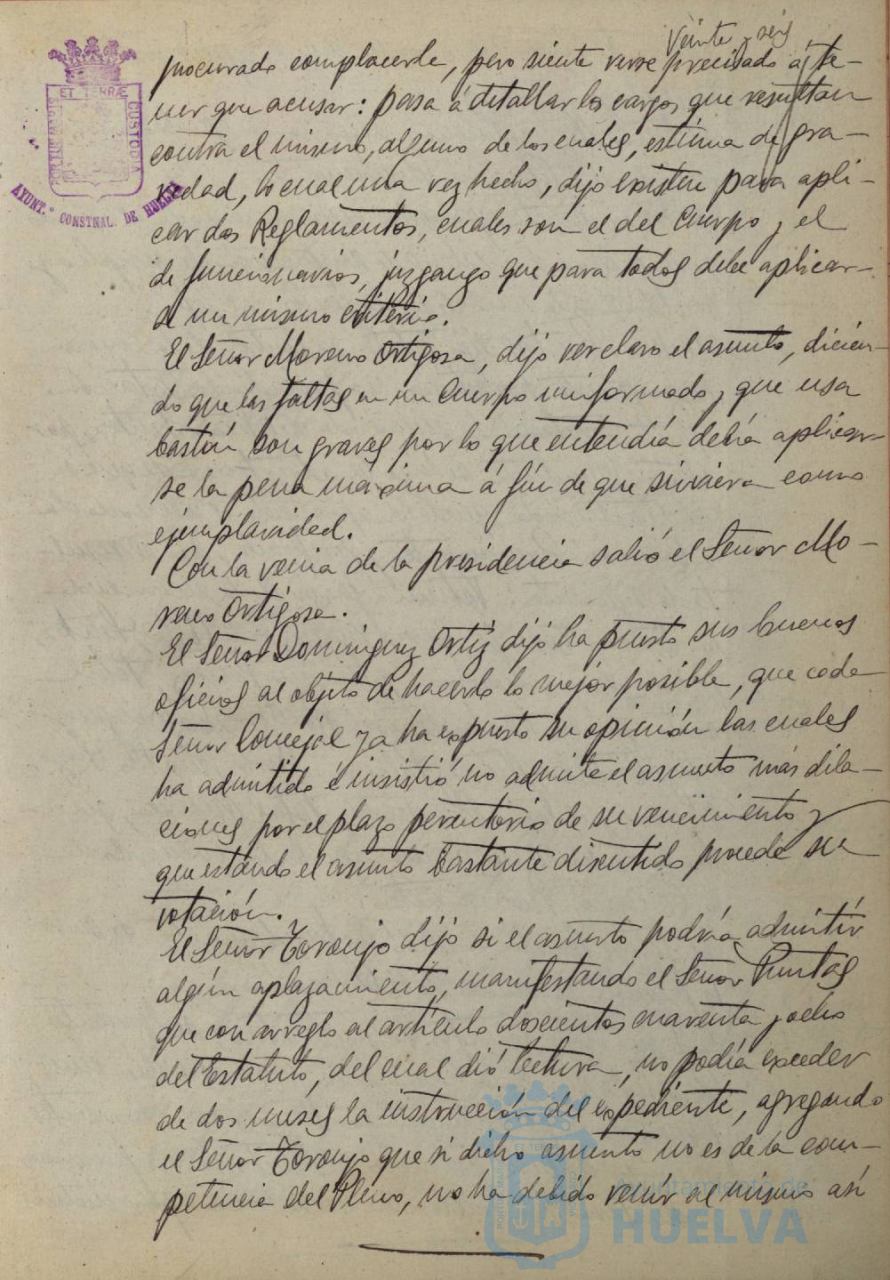 Veinte y seis
procurado complacerle, pero siente verse precisado á te-
ner que acusar: pasa á detallar los cargos que resultan
contra el mismo, alguno de los cuales, estima de gra-
vedad, lo cual una vez hecho, dijo existen para apli-
car dos Reglamentos, cuales son el del Cuerpo y el
de funcionarios, juzgango que para todos debe aplicar-
se un mismo criterio.
El Señor Moreno Ortigosa, dijo ver claro el asunto, dicien-
do que las faltas en un Cuerpo uniformado y que usa
bastón son graves por lo que entendía debía aplicar-
se la pena máxima á fin de que sirviera como
ejemplaridad.
Con la venia de la presidencia salió el Señor Mo-
reno Ortigosa.
El Señor Dominguez Ortiz dijo ha puesto sus buenos
oficios al objeto de hacerlo lo mejor posible, que cada
Señor Concejal ya ha expuesto su opinión las cuales
ha admitido é insistió no admite el asunto más dila-
ciones por el plazo perentorio de su vencimiento y
que estando el asunto bastante discutido procede su
votación.
El Señor Toronjo dijo si el asunto podría admitir
algún aplazamiento, manifestando el Señor Puntas
que con arreglo al artículo doscientos cuarenta y ocho
del Estatuto, del cual dió lectura, no podía exceder
de dos meses la instrucción del expediente, agregando
el Señor Toronjo que si dicho asunto no es de la com-
petencia del Pleno, no ha debido venir al mismo así
ET TERRÆ
CUSTODIA
AYUNT.º CONSTNAL. DE HUELVA
Ayuntamiento de
HUELVA